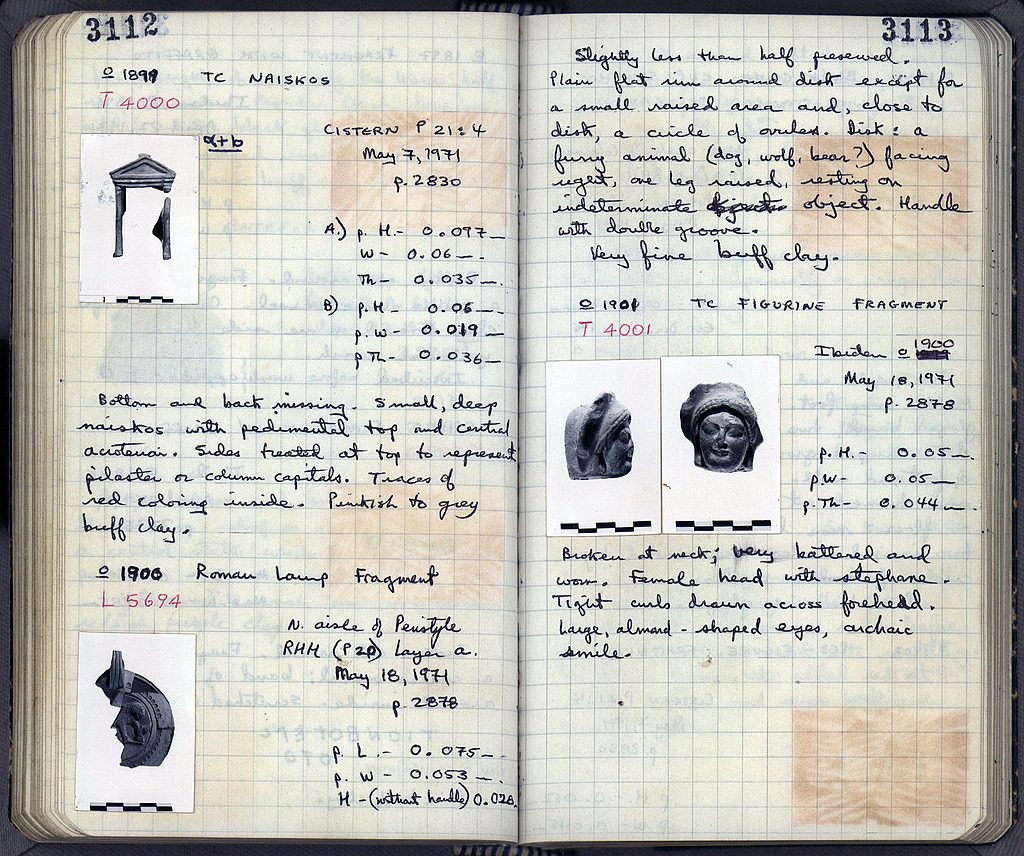 3112
O 1899 TC NAISKOS
T 4000
a+b
CISTERN P 21:4
May 7, 1971
p. 2830
A.) p. H.- 0.097 —
W - 0.06 —.
Th - 0.035 —.
B) p. H - 0.06 —
p. W - 0.019 —
p Th - 0.036 —
Bottom and back missing. Small, deep
naiskos with pedimental top and central
acroterion. Sides treated at top to represent
pilaster or column capitals. Traces of
red coloring inside. Pinkish to grey
buff clay.
O 1900 Roman Lamp Fragment
L 5694
N. aisle of Peristyle
RHH (P20) Layer a.
May 18, 1971
p. 2878
p. L. - 0.075 — .
p. W - 0.053 — .
H - (without handle) 0.028
3113
Slightly less than half preserved.
Plain flat rim around disk except for
a small raised area and, close to
disk, a circle of ovules. Disk: a
furry animal (dog, wolf, bear?) facing
right, one leg raised, resting on
indeterminate object. Handle
with double groove.
Very fine buff clay.
O 1901 TC FIGURINE FRAGMENT
T 4001
Ibidem O 1900
May 18, 1971
p. 2878
p. H. - 0.05 —.
p.W - 0.05 —
p. Th - 0.044 —.
Broken at neck; very battered and
worn. Female head with stephane.
Tight curls drawn across forehead.
Large, almond-shaped eyes, archaic
smile.